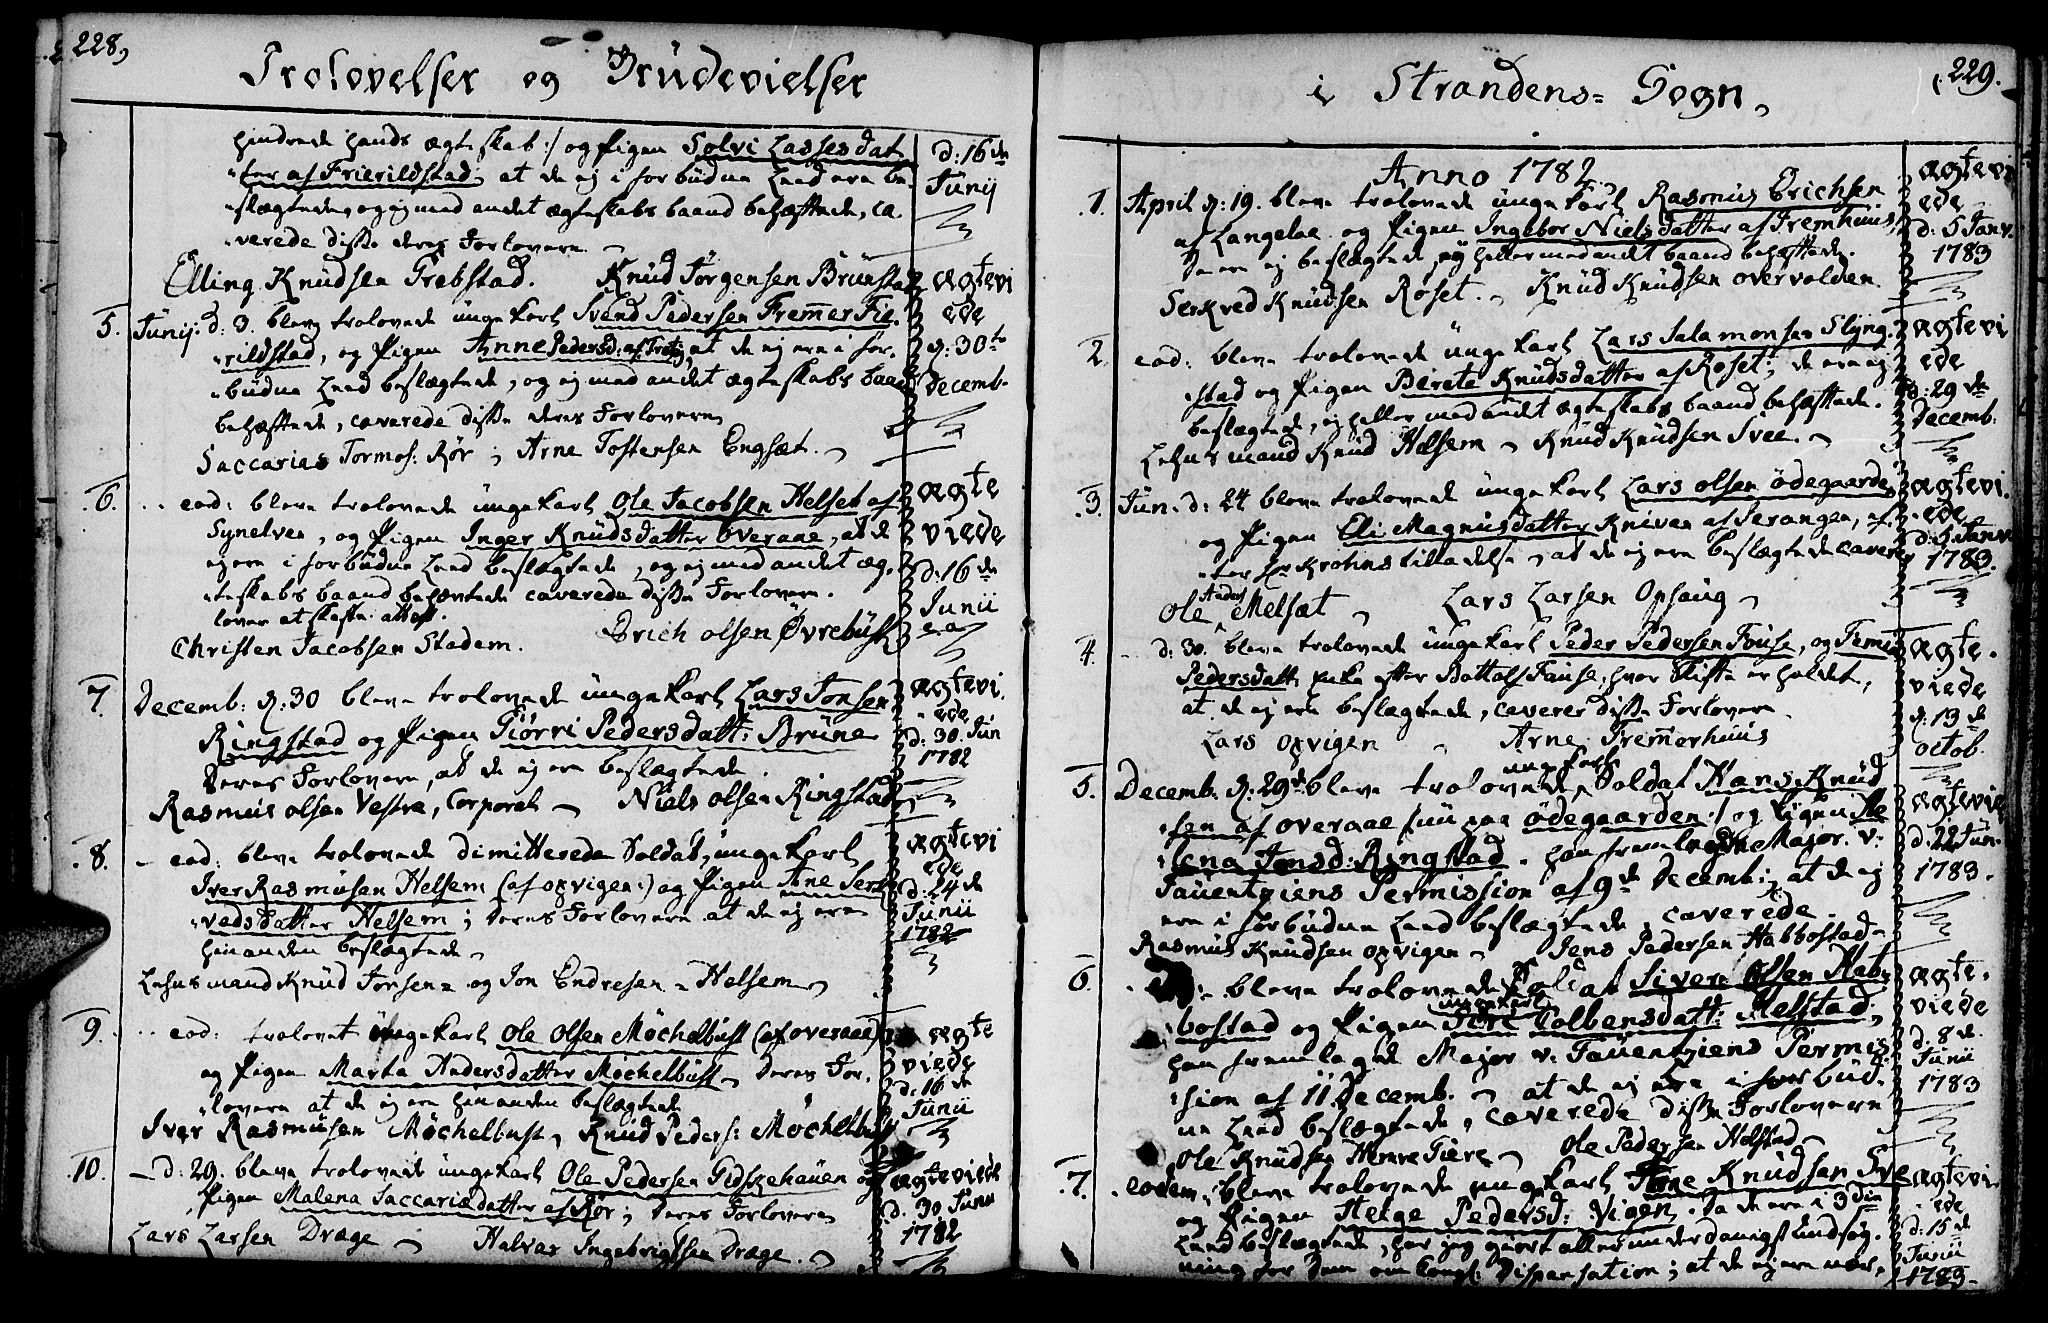 228,
Trolovelser og Brüdevielser
hindrede hands ægteskab :/ og Pigen Solvi Lassesdat
ter af Frierildstad, at de ej i forbudne Leed ere be-
slægtede, og ej med andet ægteskabs baand behæftede, ca-
verede disse deres Forlovere
Elling Knüdsen Grebstad. Knüd Jørgensen Brünstad
d: 16de
Junij
5. Junij. d. 3. bleve trolovede ungekarl Svend Pedersen Fremer Fie-
rildstad, og Pigen Anne Pedersd: af at de ej ere i for-
büdne Leed beslægtede, og ej med andet ægteskabs baand
behæftede, caverede disse deres Forlovere
Saccarias Tormos: Rör, Arne Tostensen Engsæt.
ægtevi
ede
d: 30te
Decemb.
6. eod: bleve trolovede ungekarl Ole Jacobsen Helset af
Synelven, og Pigen Inger Knüdsdatter Overaae, at de
ej ere i forbüdne Leed beslægtede, og ej med andet æg-
teskabs baand behæftede caverede disse Forlovere.
lover at skaffe attest.
Christen Jacobsen Stadem. Erich Olsen Øvrebüst
ægte
viede
d: 16de
Junii
7. Decemb: d: 30 bleve trolovede ungekarl Lars Jonsen
Ringstad og Pigen Giörri Pedersdatt: Brüne
Deres Forlovere, at de ej ere beslægtede.
Rasmus Olsen Vestre, Corporal Niels Olsen Ringstad
ægtevi.
ede
d: 30. Jun
1782
8. eod: bleve trolovede dimitterede Soldat, ungekarl
Iver Rasmüsen Helsem (af Opvigen:) og Pigen Ane Serk
vedsdatter Helsem; Deres Forlovere at de ej ere
hinanden beslægtede
Lehnsmand Knüd Jonsen og Jon Endresen Helsem
ægtevi
ede
d: 24de
Junii
1782
9. eod: trolovet üngekarl Ole Olsen Möchelbust (af overaae)
og Pigen Marta Andersdatter Möchelbüst. Deres For-
lovere at de ej ere hinanden beslægtede
Iver Rasmüsen Möchelbust, Knüd Peders: Möchelbüst
ægte
viede
d: 16de
Junii
10. d: 29. bleve trolovede ungekarl Ole Pedersen Gidskehauen og
Pigen Malena Saccariædatter af Rör; Deres Forlovere
Lars Larsen Drage Halvar Ingebrigtsen Drage.
ægteviede
d. 30 Junii
1782
229.
i Strandens= Sogn,
Anno 1782.
1. April d: 19. bleve trolovede ungekarl Rasmus Erichsen
af Langeloe og Pigen Ingebor Nielsdatter af Fremhuus,
De ere ej beslægtede, ej heller med andet baand behæftede.
Serkved Knüdsen Roset. Knüd Knüdsen overvolden
ægtevi
ede
d: 5 Janv.
1783
2. eod: bleve trolovede ungekarl Lars Salamonsen Slyng-
stad og Pigen Birete Knüdsdatter af Roset; de ere ej
beslægtede, ej heller med andet Ægteskabs baand behæftede.
Lehnsmand Knüd Helsem Knüd Knüdsen Svee.
ægtevi
ede
d: 29de
Decemb.
3. Jun. d: 24 bleve trolovede ungekarl Lars Olsen ödegaarde,
og Pigen Eli Magnüsdatter Kniven af Serangen, ef-
ter Hr Krohns tilladelse, at de ej ere beslægtede caverer
Ole Anders Melsæt Lars Larsen Opsaug
ægtevi.
ede
d: 5 Janv
1783.
4. d: 30. bleve trolovede ungekarl Peder Pedersen Fouse, og
Pedersdatt: Enke efter Fause, hvor Skifte er holdet,
at de ej ere beslægtede, caverer disse Forlovere
Lars Opvigen Arne Fremerhuus
ægte-
viede
d: 13de
octob.
5. Decemb. d: 29de bleve trolovede ungekarl Soldat Hans Knüd-
sen af overaae (nu paa ödegaarden:) og Pigen
lena Jonsd: Ringstad. Han fremlagde Major v:
Tauentziens Permission af 9de Decemb: at de ej
ere i forbudne Leed beslægtede, caverede
Rasmus Knüdsen Opvigen Jens Pedersen Habbostad
ægtevie
d: 22 Jun.
1783.
6. bleve trolovede Soldat Siver Olsen Hab-
bostad og Pigen ungekarl Colbensdatt: Helstad,
han fremlagde Major v: Tauentziens Permis-
sion af 11 Decemb. at de ej ere i forbüd-
ne Leed beslægtede, caverede disse Forlovere
Ole Knüdsen Ole Pedersen Helstad
ægte-
viede
d. 8de.
Junii
1783
7. eodem, bleve trolovede ungekarl Knüdsen Sve
og Pigen Helge Pedersd: Vigen. Da de ere i 3die
Leed beslægtede, har jeg giort allerunderdanigst Ansøg-
ning for Dem om Kongl: Dispensation; at de ej ere nær,
ægtevi
ede
d: 15de
Junii
1783